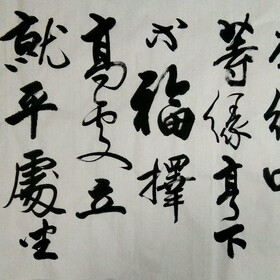 等緣享下
等福擇
高處立
就平處坐